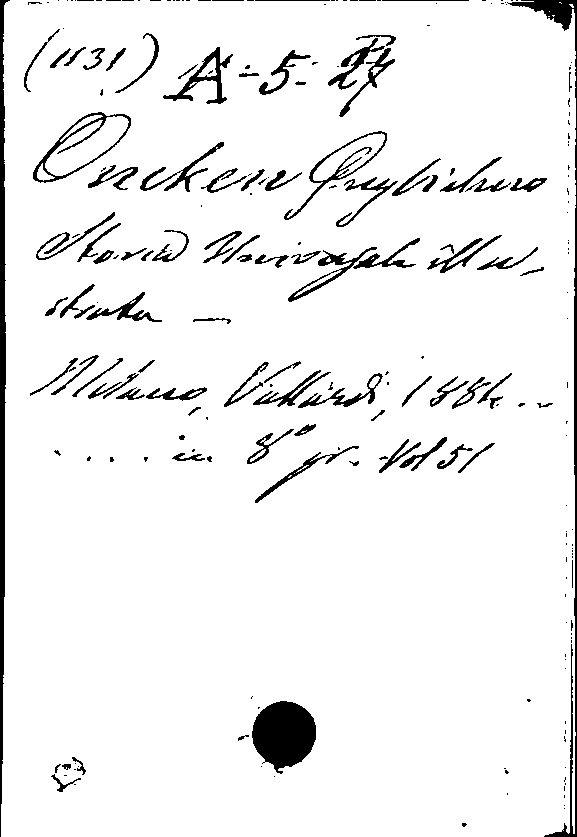 (1131) A-5-27
Oncken Guglielmo
Storia Universale illu-
strata —
Milano, Vallardi, 1884 ..
.... in 8° gr. Vol 51